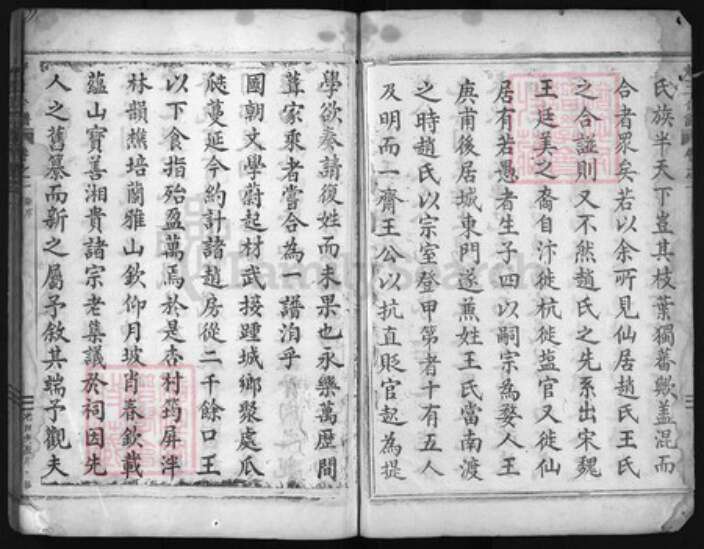 氏族半天下豈其枝葉獨蕃歟蓋混而
合者眾矣若以余所見仙居趙氏王氏
之合譜則又不然趙氏之先系出宋魏
王廷美之裔自汴徙杭徙鹽官又徙仙
居有若愚者生子四以嗣宗為婺人王
庾甫後居城東門遂蕪姓王氏當南渡
之時趙氏以宗室登甲第者十有五人
及明而一齋王公以抗直貶官起為提
學欲奏請復姓而未果也永樂萬歷間
葺家乘者嘗合為一譜洎乎
國朝文學蔚起材武接踵城鄉聚處瓜
瓞蔓延今約計諸趙房從二千餘口王
以下食指殆盈萬焉於是杏村筠屏泮
林韻樵培蘭雅山欽仰月坡肖春欽載
蘊山寶善湘貴諸宗老集議於祠因先
人之舊纂而新之屬予敘其端予觀夫
FamilySearch